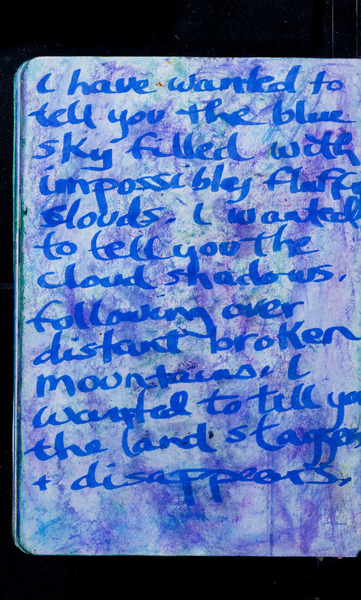 I have wanted to
tell you the blue
sky filled with
impossibley fluffy
slouds. I wanted
to tell you the
cloud shadows.
following over
distant broken
mountains. I
wanted to tell you
the land staggers
+ disappears.